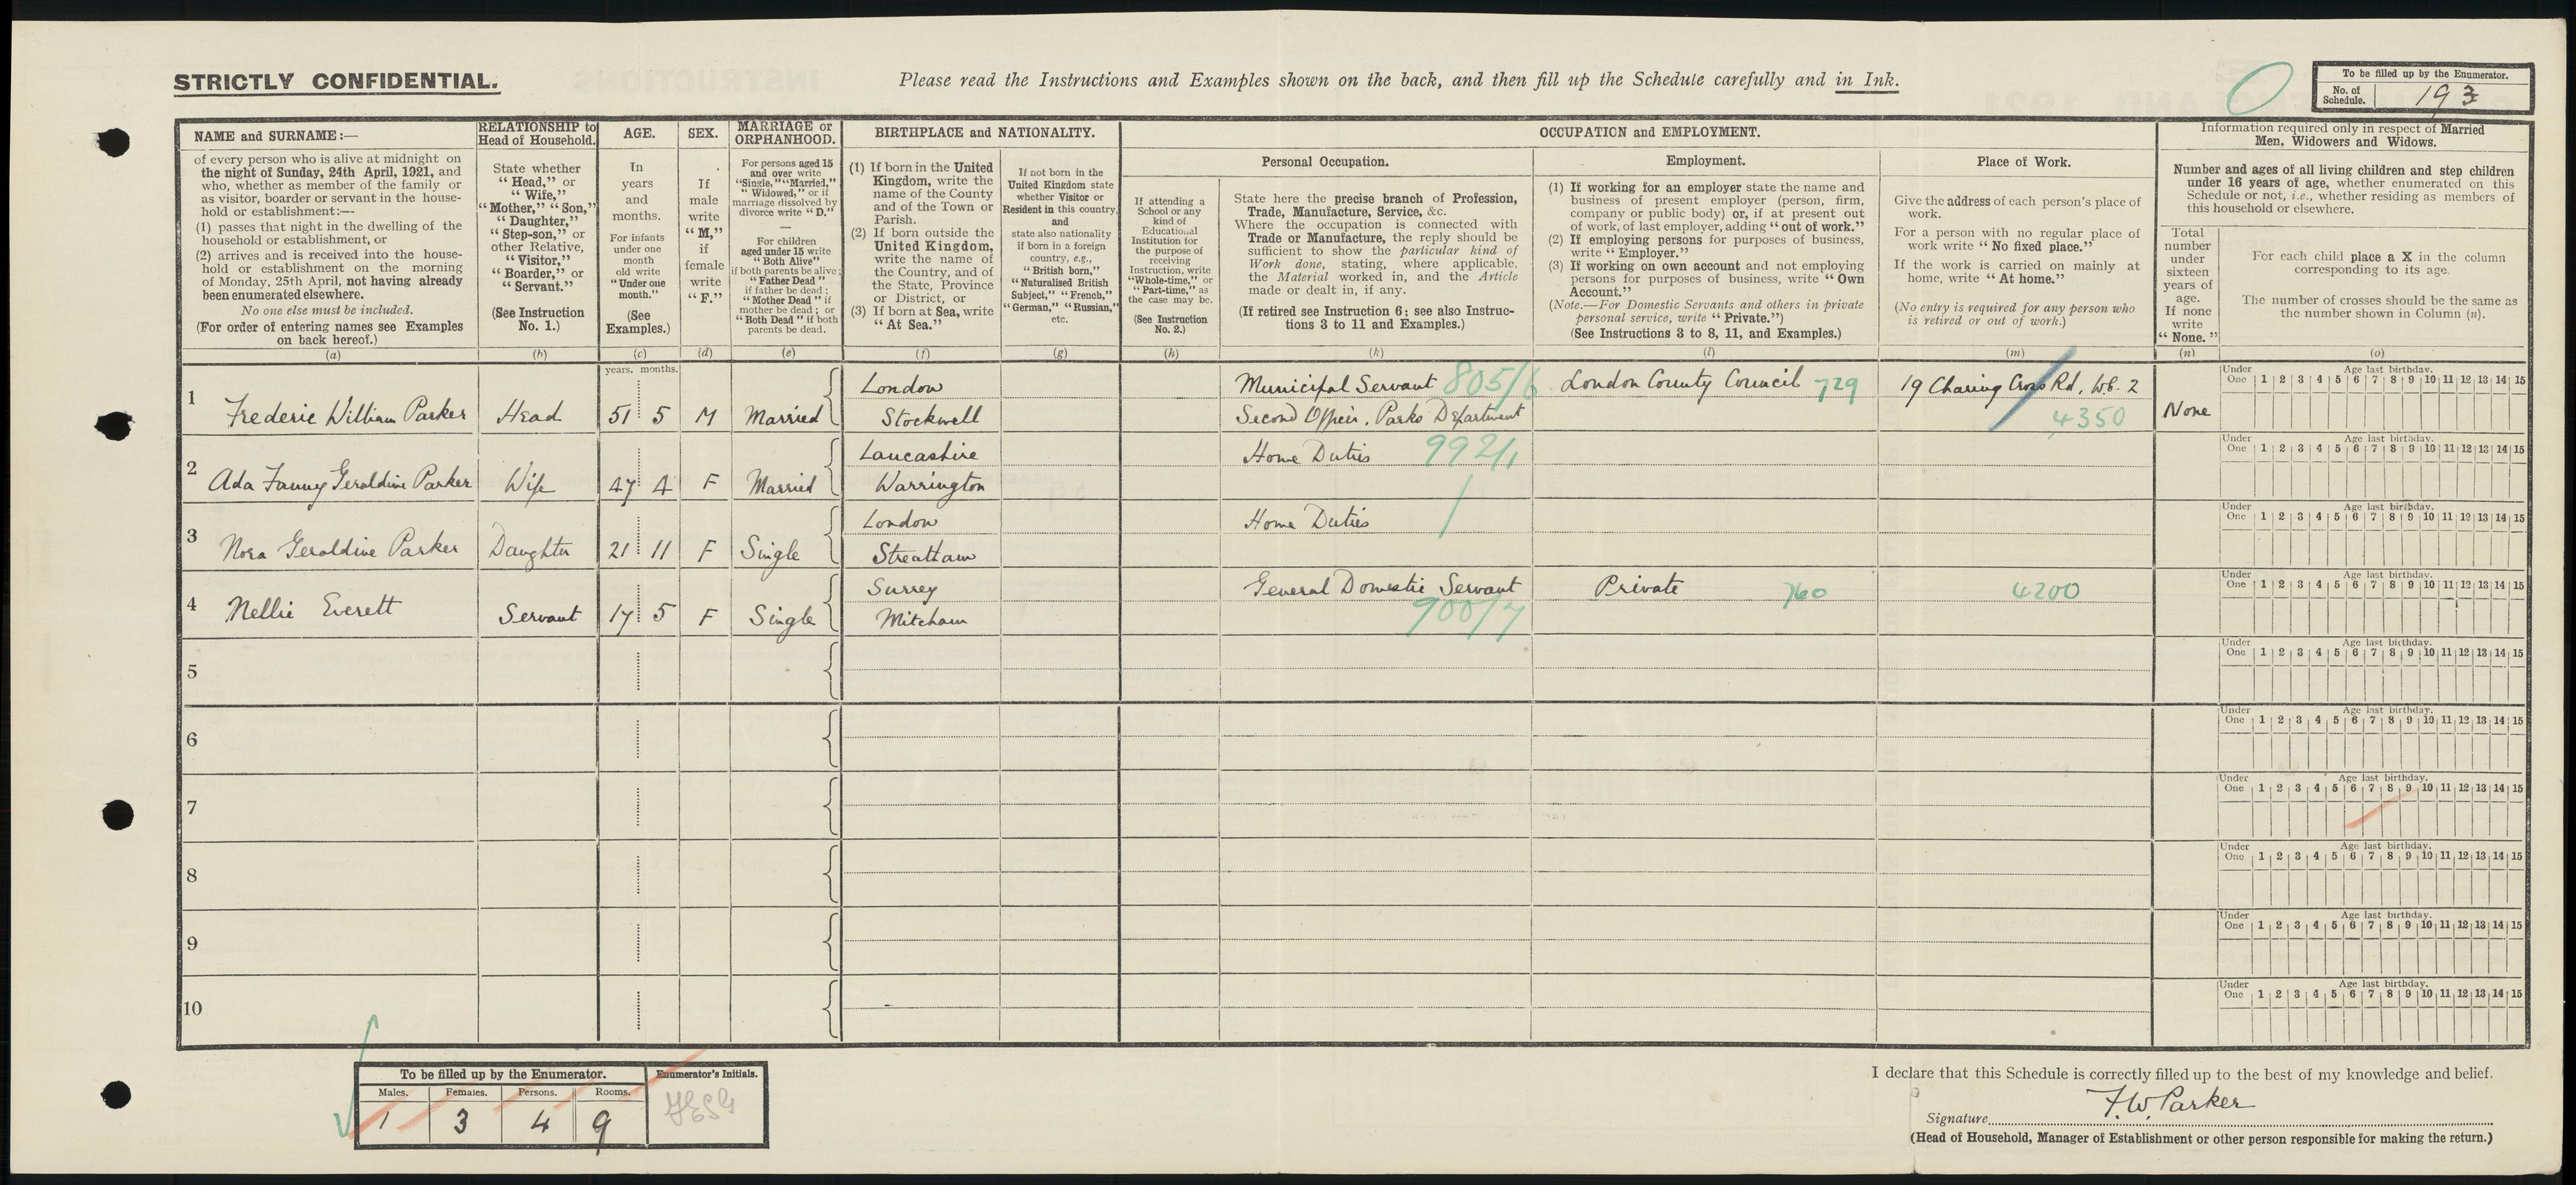 STRICTLY CONFIDENTIAL.
Please read the Instructions and Examples shown on the back, and then fill up the Schedule carefully and in Ink.
To be filled up by the Enumerator.
No. of Schedule. 193
NAME and SURNAME:—
of every person who is alive at midnight on
the night of Sunday, 24th April, 1921, and
who, whether as member of the family or
as visitor, boarder or servant in the house-
hold or establishment:—
(1) passes that night in the dwelling of the
household or establishment, or
(2) arrives and is received into the house-
hold or establishment on the morning
of Monday, 25th April, not having already
been enumerated elsewhere.
No one else must be included.
(For order of entering names see Examples
on back hereof.)
(a)
RELATIONSHIP to
Head of Household.
State whether
"Head," or
"Wife,"
"Mother," "Son,"
"Daughter,"
"Step-son," or
other Relative,
"Visitor,"
"Boarder," or
"Servant."
(See Instruction
No. 1.)
(b)
AGE.
In
years
and
months.
For infants
under one
month
old write
"Under one
month."
(See
Examples.)
(c)
SEX.
If
male
write
"M,"
if
female
write
"F."
(d)
MARRIAGE or
ORPHANHOOD.
For persons aged 15
and over write
"Single," "Married,"
"Widowed," or if
marriage dissolved by
divorce write "D."
—
For children
aged under 15 write
"Both Alive"
if both parents be alive;
"Father Dead"
if father be dead;
"Mother Dead" if
mother be dead; or
"Both Dead" if both
parents be dead.
(e)
BIRTHPLACE and NATIONALITY.
(1) If born in the United
Kingdom, write the
name of the County
and of the Town or
Parish.
(2) If born outside the
United Kingdom,
write the name of
the Country, and of
the State, Province
or District, or
(3) If born at Sea, write
"At Sea."
(f)
If not born in the
United Kingdom state
whether Visitor or
Resident in this country,
and
state also nationality
if born in a foreign
country, e.g.,
"British born,"
"Naturalised British
Subject," "French,"
"German," "Russian,"
etc.
(g)
OCCUPATION and EMPLOYMENT.
If attending a
School or any
kind of
Educational
Institution for
the purpose of
receiving
Instruction, write
"Whole-time," or
"Part-time," as
the case may be.
(See Instruction
No. 2.)
(h)
Personal Occupation.
State here the precise branch of Profession,
Trade, Manufacture, Service, &c.
Where the occupation is connected with
Trade or Manufacture, the reply should be
sufficient to show the particular kind of
Work done, stating, where applicable,
the Material worked in, and the Article
made or dealt in, if any.
(If retired see Instruction 6: see also Instruc-
tions 3 to 11 and Examples.)
(k)
Employment.
(1) If working for an employer state the name and
business of present employer (person, firm,
company or public body) or, if at present out
of work, of last employer, adding "out of work."
(2) If employing persons for purposes of business,
write "Employer."
(3) If working on own account and not employing
persons for purposes of business, write "Own
Account."
(Note.—For Domestic Servants and others in private
personal service, write "Private.")
(See Instructions 3 to 8, 11, and Examples.)
(l)
Place of Work.
Give the address of each person's place of
work.
For a person with no regular place of
work write "No fixed place."
If the work is carried on mainly at
home, write "At home."
(No entry is required for any person who
is retired or out of work.)
(m)
Information required only in respect of Married
Men, Widowers and Widows.
Number and ages of all living children and step children
under 16 years of age, whether enumerated on this
Schedule or not, i.e., whether residing as members of
this household or elsewhere.
Total
number
under
sixteen
years of
age.
If none
write
"None."
(n)
For each child place a X in the column
corresponding to its age.
The number of crosses should be the same as
the number shown in Column (n).
(o)
years. months.
1 Frederic William Parker Head 51 5 M Married London Stockwell Municipal Servant 805/6 Second Officer, Parks Department London County Council 729 19 Charing Cross Rd, W.C. 2 4350 None
Under One 1 2 3 4 5 6 7 8 9 10 11 12 13 14 15 Age last birthday.
2 Ada Fanny Geraldine Parker Wife 47 4 F Married Lancashire Warrington Home Duties 992/1
Under One 1 2 3 4 5 6 7 8 9 10 11 12 13 14 15 Age last birthday.
3 Nora Geraldine Parker Daughter 21 11 F Single London Streatham Home Duties
Under One 1 2 3 4 5 6 7 8 9 10 11 12 13 14 15 Age last birthday.
4 Nellie Everett Servant 17 5 F Single Surrey Mitcham General Domestic Servant 900/7 Private 760 4200
Under One 1 2 3 4 5 6 7 8 9 10 11 12 13 14 15 Age last birthday.
5
Under One 1 2 3 4 5 6 7 8 9 10 11 12 13 14 15 Age last birthday.
6
Under One 1 2 3 4 5 6 7 8 9 10 11 12 13 14 15 Age last birthday.
7
Under One 1 2 3 4 5 6 7 8 9 10 11 12 13 14 15 Age last birthday.
8
Under One 1 2 3 4 5 6 7 8 9 10 11 12 13 14 15 Age last birthday.
9
Under One 1 2 3 4 5 6 7 8 9 10 11 12 13 14 15 Age last birthday.
10
Under One 1 2 3 4 5 6 7 8 9 10 11 12 13 14 15 Age last birthday.
To be filled up by the Enumerator.
Enumerator's Initials.
Males. Females. Persons. Rooms.
1 3 4 9
I declare that this Schedule is correctly filled up to the best of my knowledge and belief.
Signature F. W. Parker
(Head of Household, Manager of Establishment or other person responsible for making the return.)